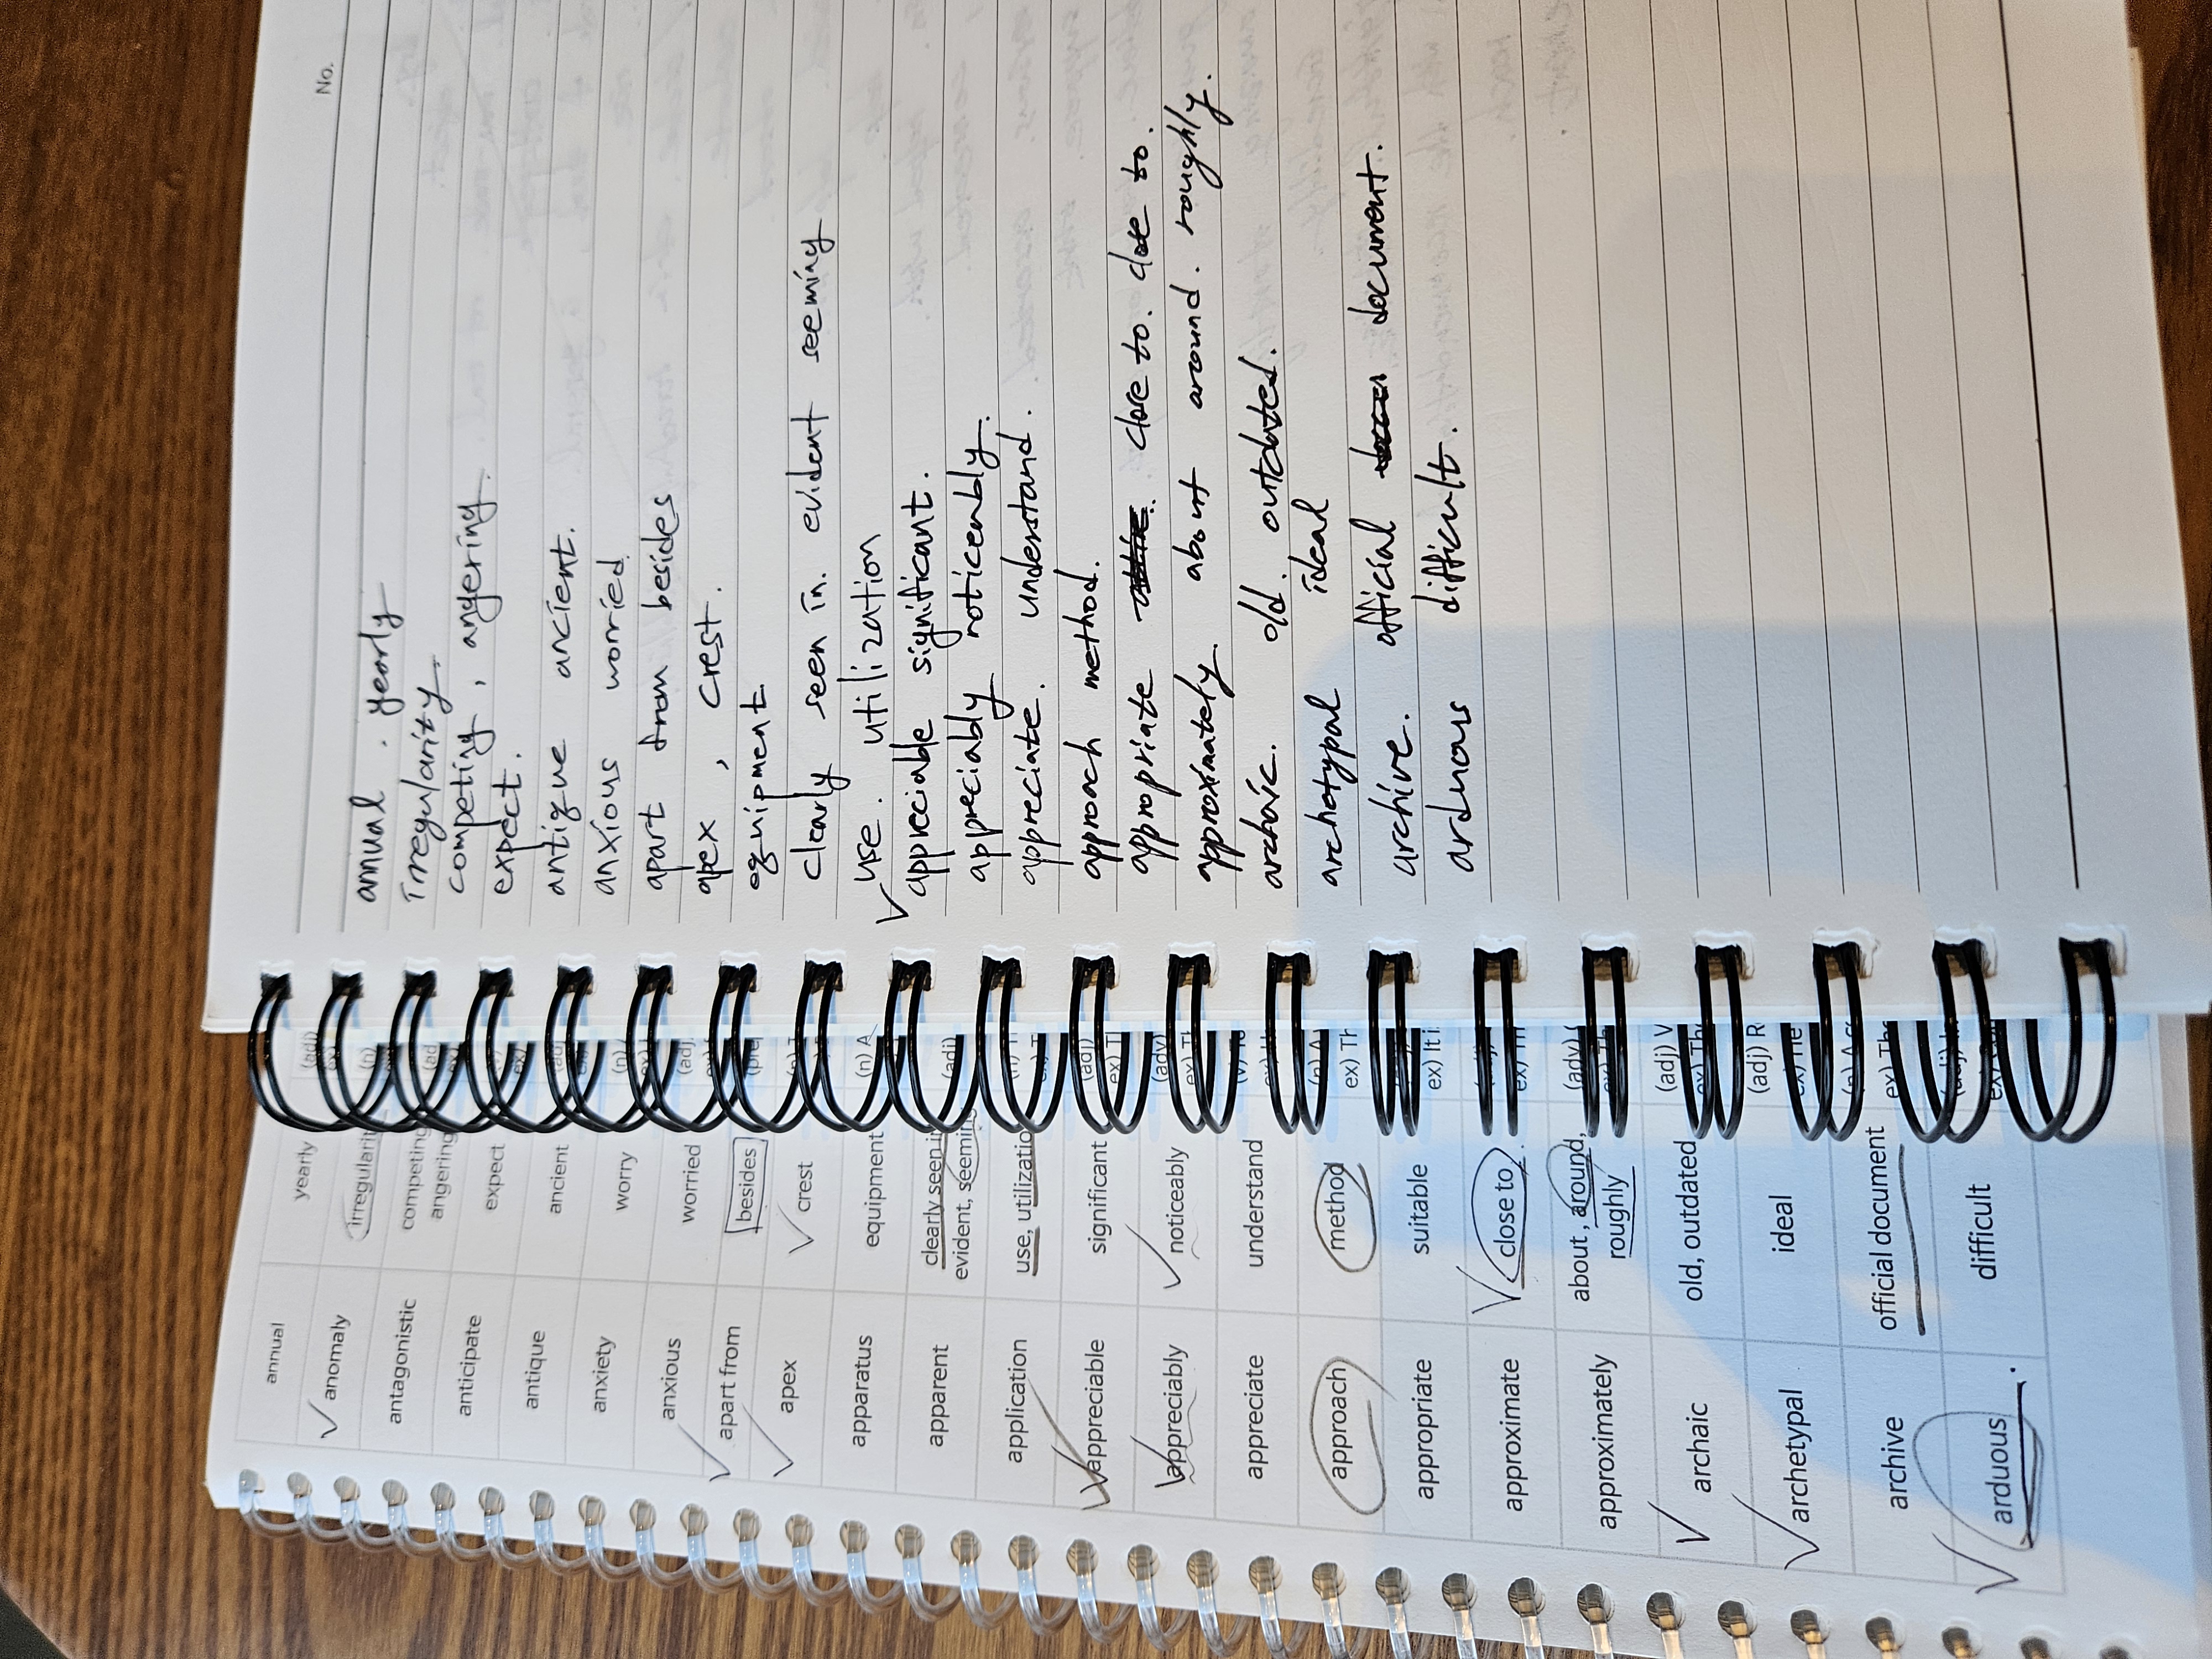 No.
annual . yearly
irregularity
competing , angering .
expect .
antique ancient .
anxious worried
apart from besides
apex , crest .
equipment
clearly seen in . evident seeming
use . utilization
appreciable significant .
appreciably noticeably .
appreciate . understand .
approach method .
appropriate close to . close to .
approximately . about around . roughly .
archaic . old . outdated .
archetypal ideal
archive . official document .
arduous difficult .
annual yearly (adj)
anomaly irregularity (n)
antagonistic competing (ad
angering
anticipate expect
antique ancient (ad
anxiety worry (n)
anxious worried (adj
apart from besides
apex crest
apparatus equipment (n) A
apparent clearly seen in (adj)
evident, seeming
application use, utilization
appreciable significant (adj)
appreciably noticeably (adv)
appreciate understand
approach method ex) Th
appropriate suitable ex) It i
approximate close to .
approximately about, around, (adv)
roughly
archaic old, outdated (adj) V
archetypal ideal (adj) R
archive official document ex) The
arduous . difficult